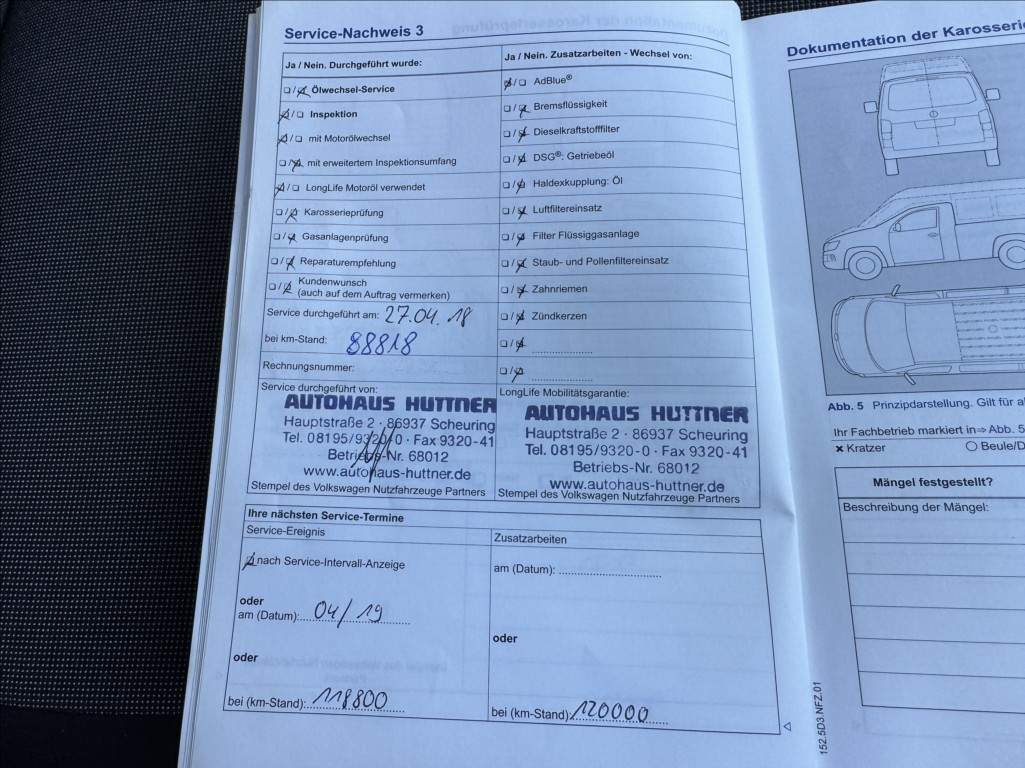 Service-Nachweis 3
Ja / Nein. Durchgeführt wurde:
Ölwechsel-Service
Inspektion
mit Motorölwechsel
mit erweitertem Inspektionsumfang
LongLife Motoröl verwendet
Karosserieprüfung
Gasanlagenprüfung
Reparaturempfehlung
Kundenwunsch
(auch auf dem Auftrag vermerken)
Service durchgeführt am: 27.04.18
bei km-Stand: 88818
Rechnungsnummer:
Ja / Nein. Zusatzarbeiten - Wechsel von:
AdBlue®
Bremsflüssigkeit
Dieselkraftstofffilter
DSG®: Getriebeöl
Haldexkupplung: Öl
Luftfiltereinsatz
Filter Flüssiggasanlage
Staub- und Pollenfiltereinsatz
Zahnriemen
Zündkerzen
Service durchgeführt von:
AUTOHAUS HUTTNER
Hauptstraße 2 · 86937 Scheuring
Tel. 08195/9320-0 · Fax 9320-41
Betriebs-Nr. 68012
www.autohaus-huttner.de
Stempel des Volkswagen Nutzfahrzeuge Partners
LongLife Mobilitätsgarantie:
AUTOHAUS HUTTNER
Hauptstraße 2 · 86937 Scheuring
Tel. 08195/9320-0 · Fax 9320-41
Betriebs-Nr. 68012
www.autohaus-huttner.de
Stempel des Volkswagen Nutzfahrzeuge Partners
Ihre nächsten Service-Termine
Service-Ereignis
nach Service-Intervall-Anzeige
oder
am (Datum): 04/19
oder
bei (km-Stand): 118800
Zusatzarbeiten
am (Datum):
oder
bei (km-Stand): 120000
152.5D3.NFZ.01
Dokumentation der Karosserie
Abb. 5 Prinzipdarstellung. Gilt für
Ihr Fachbetrieb markiert in⇒Abb. 5
Kratzer
Beule/D
Mängel festgestellt?
Beschreibung der Mängel: